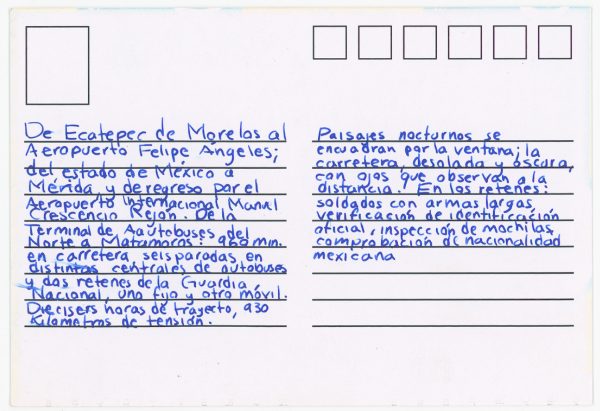 De Ecatepec de Morelos al
Aeropuerto Felipe Ángeles;
del estado de México a
Mérida, y de regreso por el
Aeropuerto Internacional Manul
Crescencio Rejón. De la
Terminal de Aautobuses del
Norte a Matamoros: 960 min.
en carretera seis paradas en
distintas centrales de autobuses
y dos retenes de la Guardia
Nacional, uno fijo y otro móvil.
Diecisers horas de trayecto, 930
Kilometros de tensión.
Paisajes nocturnos se
encuadran por la ventana; la
carretera, desolada y oscura,
con ojos que observan a la
distancia. En los retenes:
soldados con armas largas,
verificación de identificación
oficial, inspección de mochilas,
comprobación de nacionalidad
mexicana